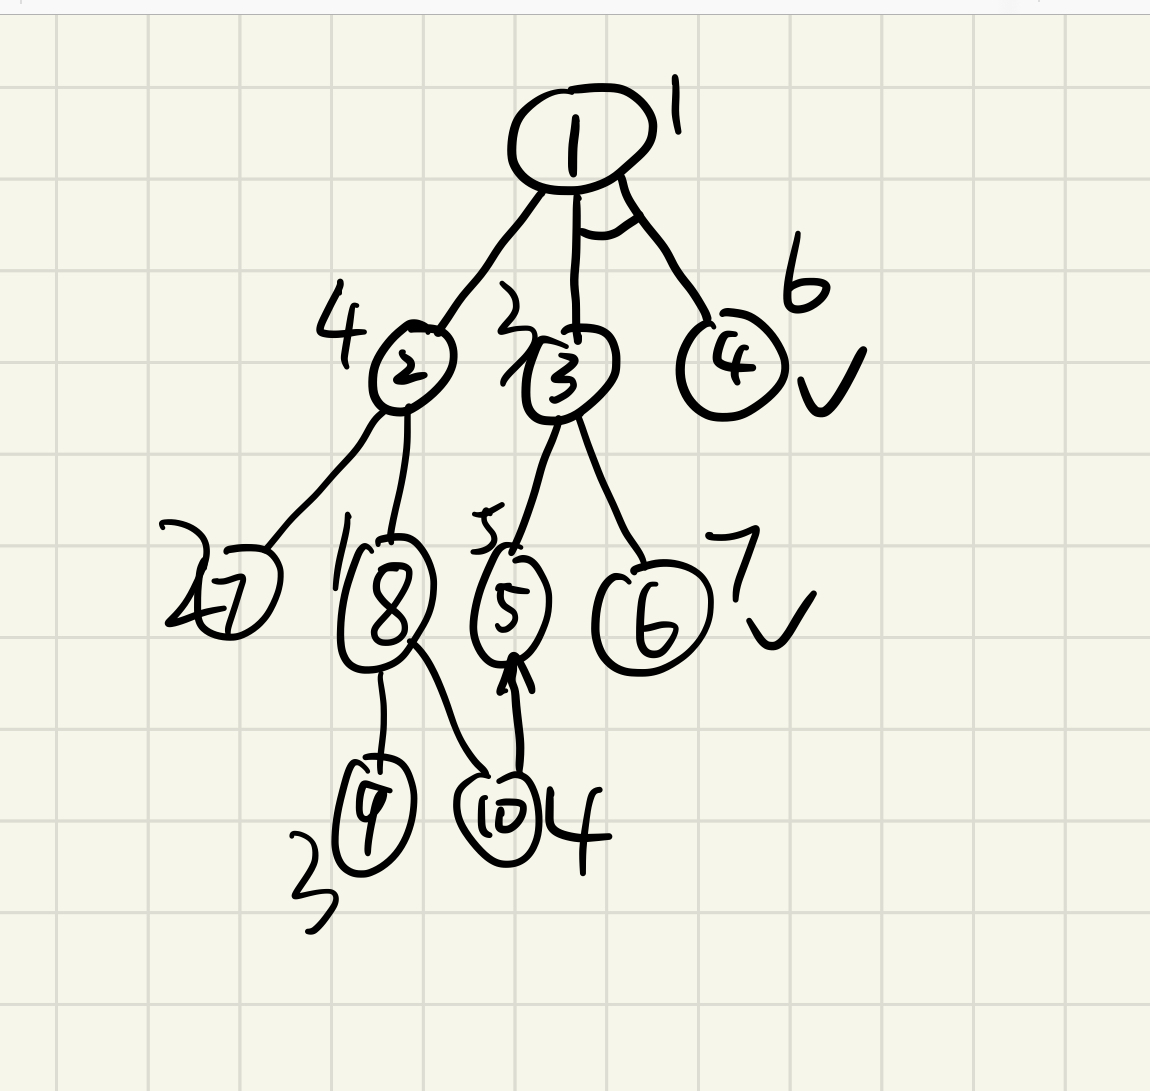 1 1
4 2 3 3 4 6
2 7 1 8 5 5 6 7
3 9 10 4